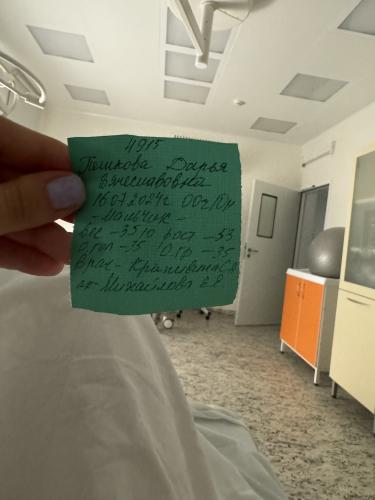 4915
Пешкова Дарья
Вячеславовна
16.07.2024г 00ч10м
- Мальчик -
вес - 3510 рост - 53
О.гол - 35 О.гр - 35
Врач - 
ак Михайлова Е.В